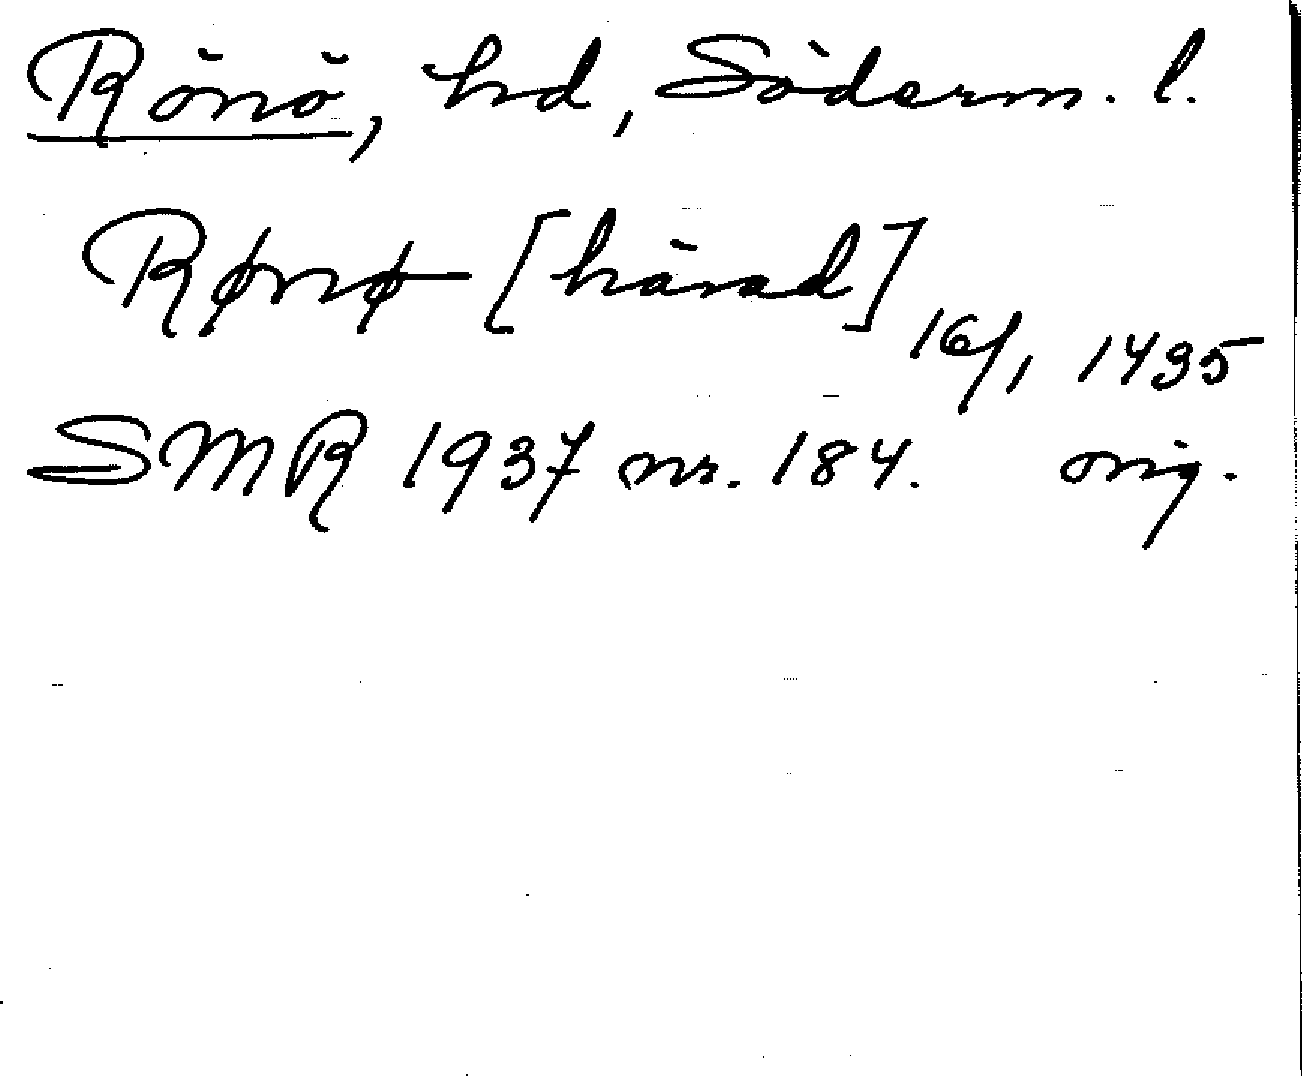 Rönö, hd, Söderm. l.
Rønø [härad]
16/1 1435
SMR 1937 nr. 184. orig.